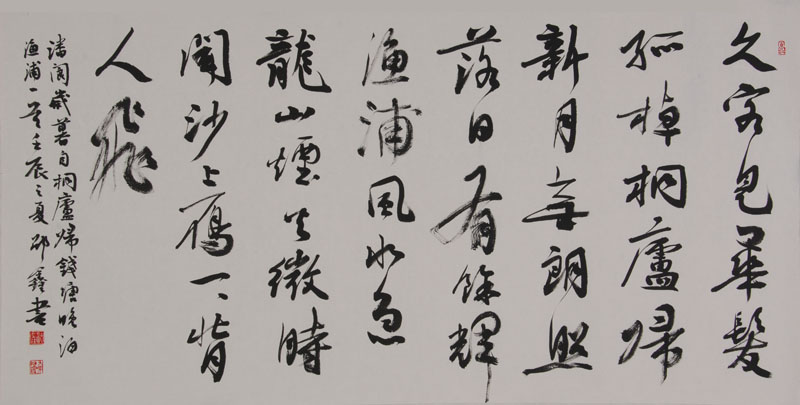 久客見華髮
孤棹桐廬歸
新月無朗照
落日有餘輝
漁浦風水急
龍山煙火微時
聞沙上鴈一一背
人飛
潘閬歲暮自桐廬歸錢塘晚泊
漁浦一首壬辰之夏邵鑫書